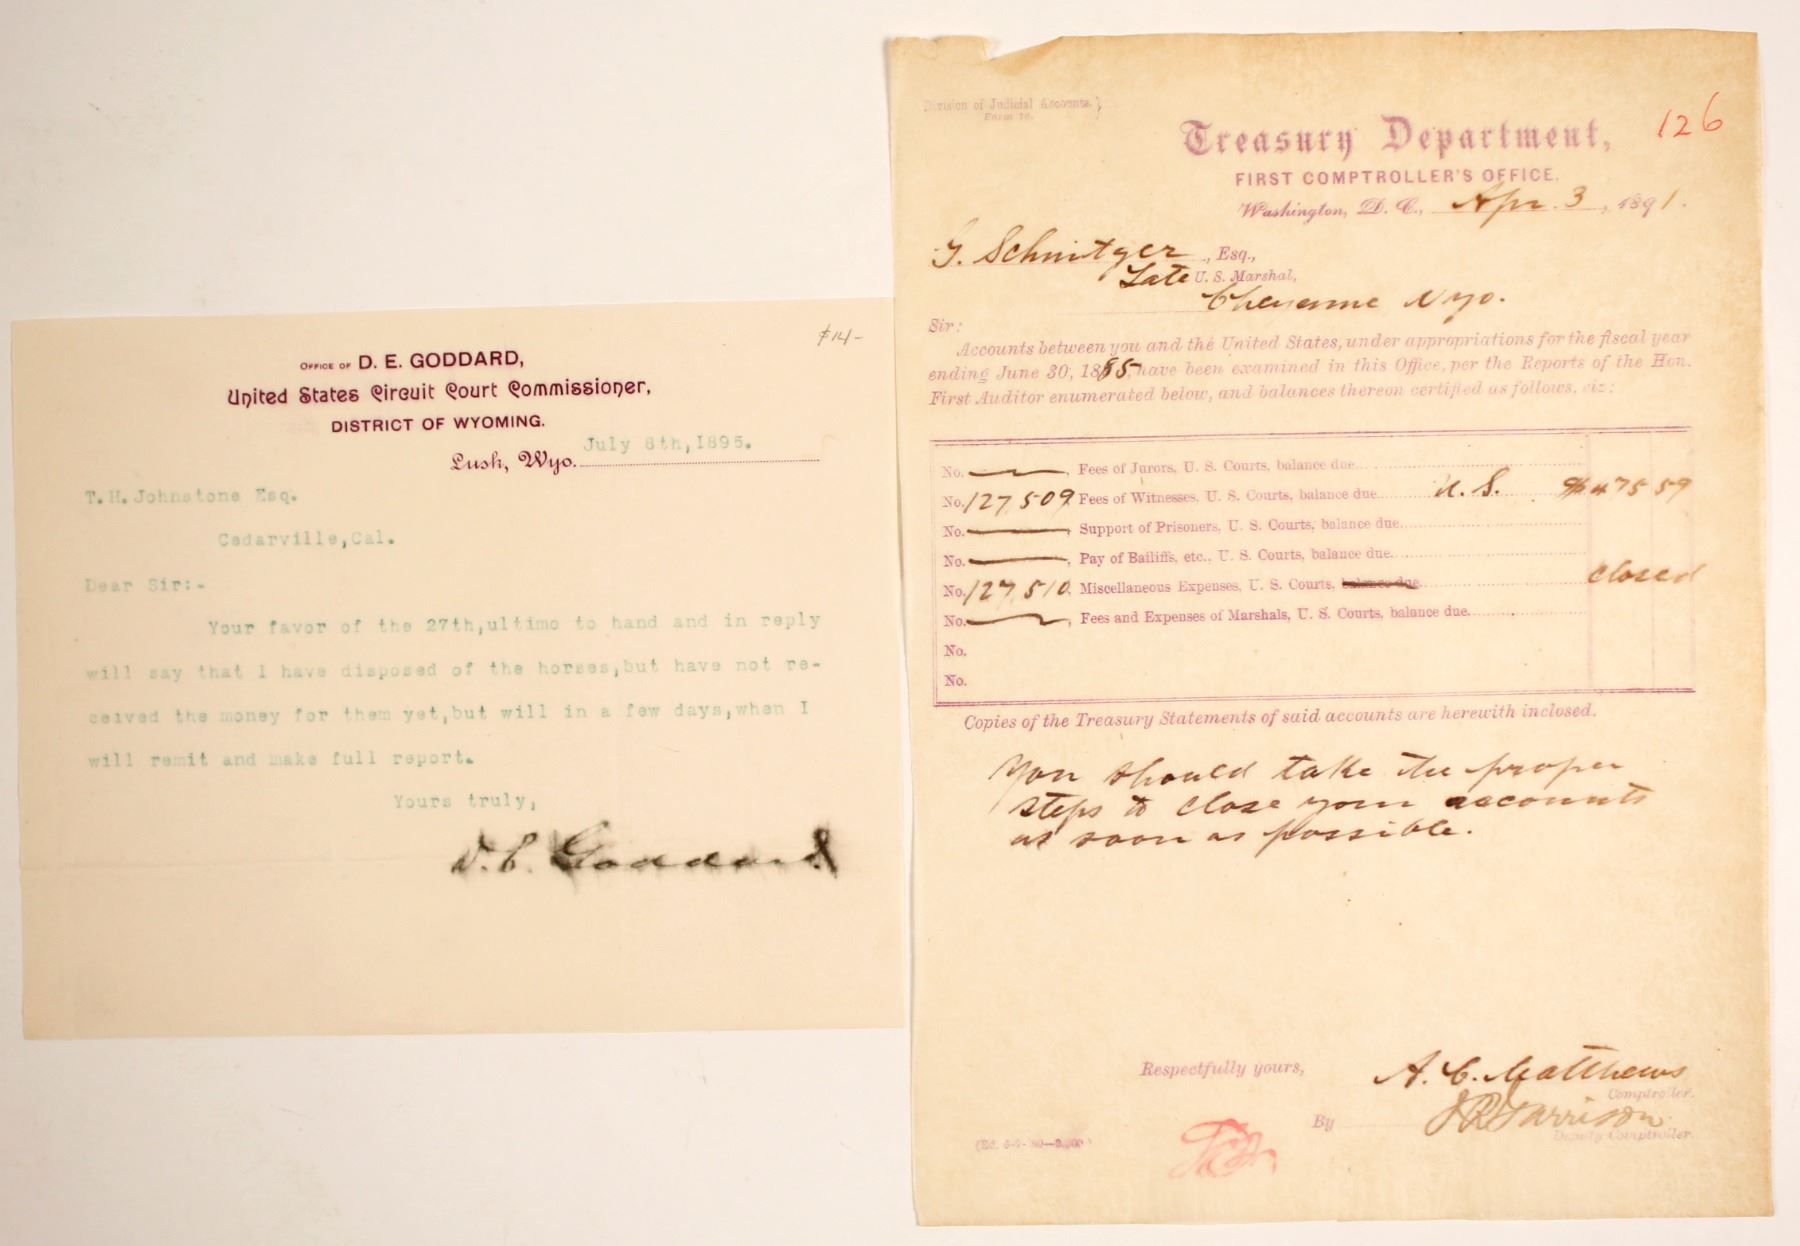 $14-
OFFICE OF D. E. GODDARD,
United States Circuit Court Commissioner,
DISTRICT OF WYOMING.
Lusk, Wyo. July 8th,1895.
T.H.Johnstone Esq.
Cedarville,Cal.
Dear Sir:-
Your favor of the 27th,ultimo to hand and in reply
will say that I have disposed of the horses,but have not re-
ceived the money for them yet,but will in a few days,when I
will remit and make full report.
Yours truly,
D. E. Goddard
Division of Judicial Accounts.}
Form
126
Treasury Department,
FIRST COMPTROLLER'S OFFICE.
Washington, D. C., Apr. 3, 1891.
Schnitger, Esq.,
Late U. S. Marshal,
Cheyenne Wyo.
Sir:
Accounts between you and the United States, under appropriations for the fiscal year
ending June 30, 1885, have been examined in this Office, per the Reports of the Hon.
First Auditor enumerated below, and balances thereon certified as follows, viz:
No. , Fees of Jurors, U. S. Courts, balance due
No. 127,509 Fees of Witnesses, U. S. Courts, balance due U. S. $475 59
No. , Support of Prisoners, U. S. Courts, balance due
No. , Pay of Bailiffs, etc., U. S. Courts, balance due
No. 127,510 Miscellaneous Expenses, U. S. Courts, balance due closed
No. , Fees and Expenses of Marshals, U. S. Courts, balance due
No.
No.
Copies of the Treasury Statements of said accounts are herewith inclosed.
You should take the proper
steps to close your accounts
as soon as possible.
Respectfully yours,
A. C. Matthews
Comptroller.
By Garrison
Deputy Comptroller.